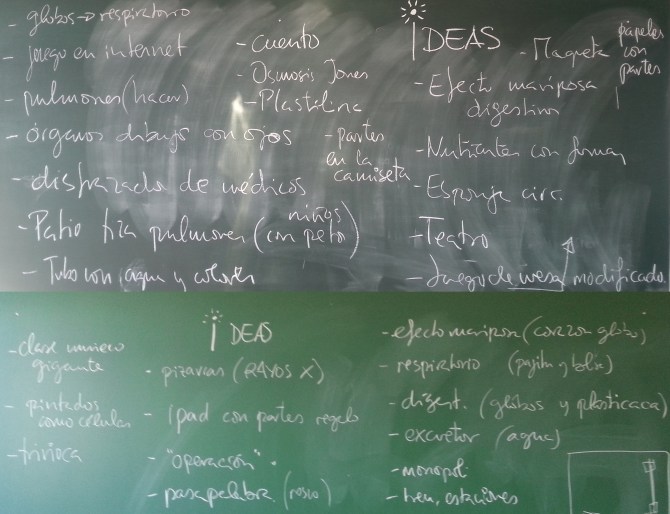 - globos → respiratorio
- juego en internet
- pulmones (hacer)
- órganos dibujo con ojos
- disfrazado de médicos
- Patio tiza pulmones (niños con peto)
- Tubo con agua y colores
- cuento
- Osmosis Jones
- Plastilina
- partes
en la
camiseta
IDEAS
- Maqueta
papeles
con
partes
- Efecto mariposa
digestivo
- Nutrientes con forma
- Esponja circ.
- Teatro
- Juego de mesa modificado
- clase muñeco
gigante
- pintados
como células
- trivioca
IDEAS
- pizarras (RAYOS X)
- ipad con partes regalo
- "operación"
- pasapalabra (rosco)
- efecto mariposa (corazón globo)
- respiratorio (pajita y blix)
- digest. (globos y plasticaca)
- excretor (agua)
- monopol
- tren, estaciones